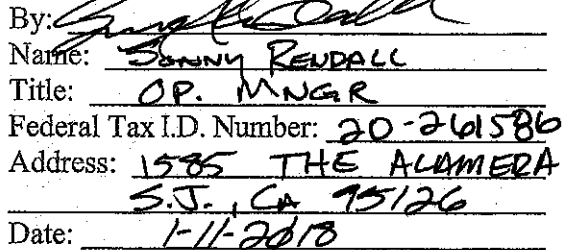 By:
Name: SONNY RENDALL
Title: OP. MNGR
Federal Tax I.D. Number: 20-261586
Address: 1585 THE ALAMEDA
S.J., CA 95126
Date: 1-11-2018